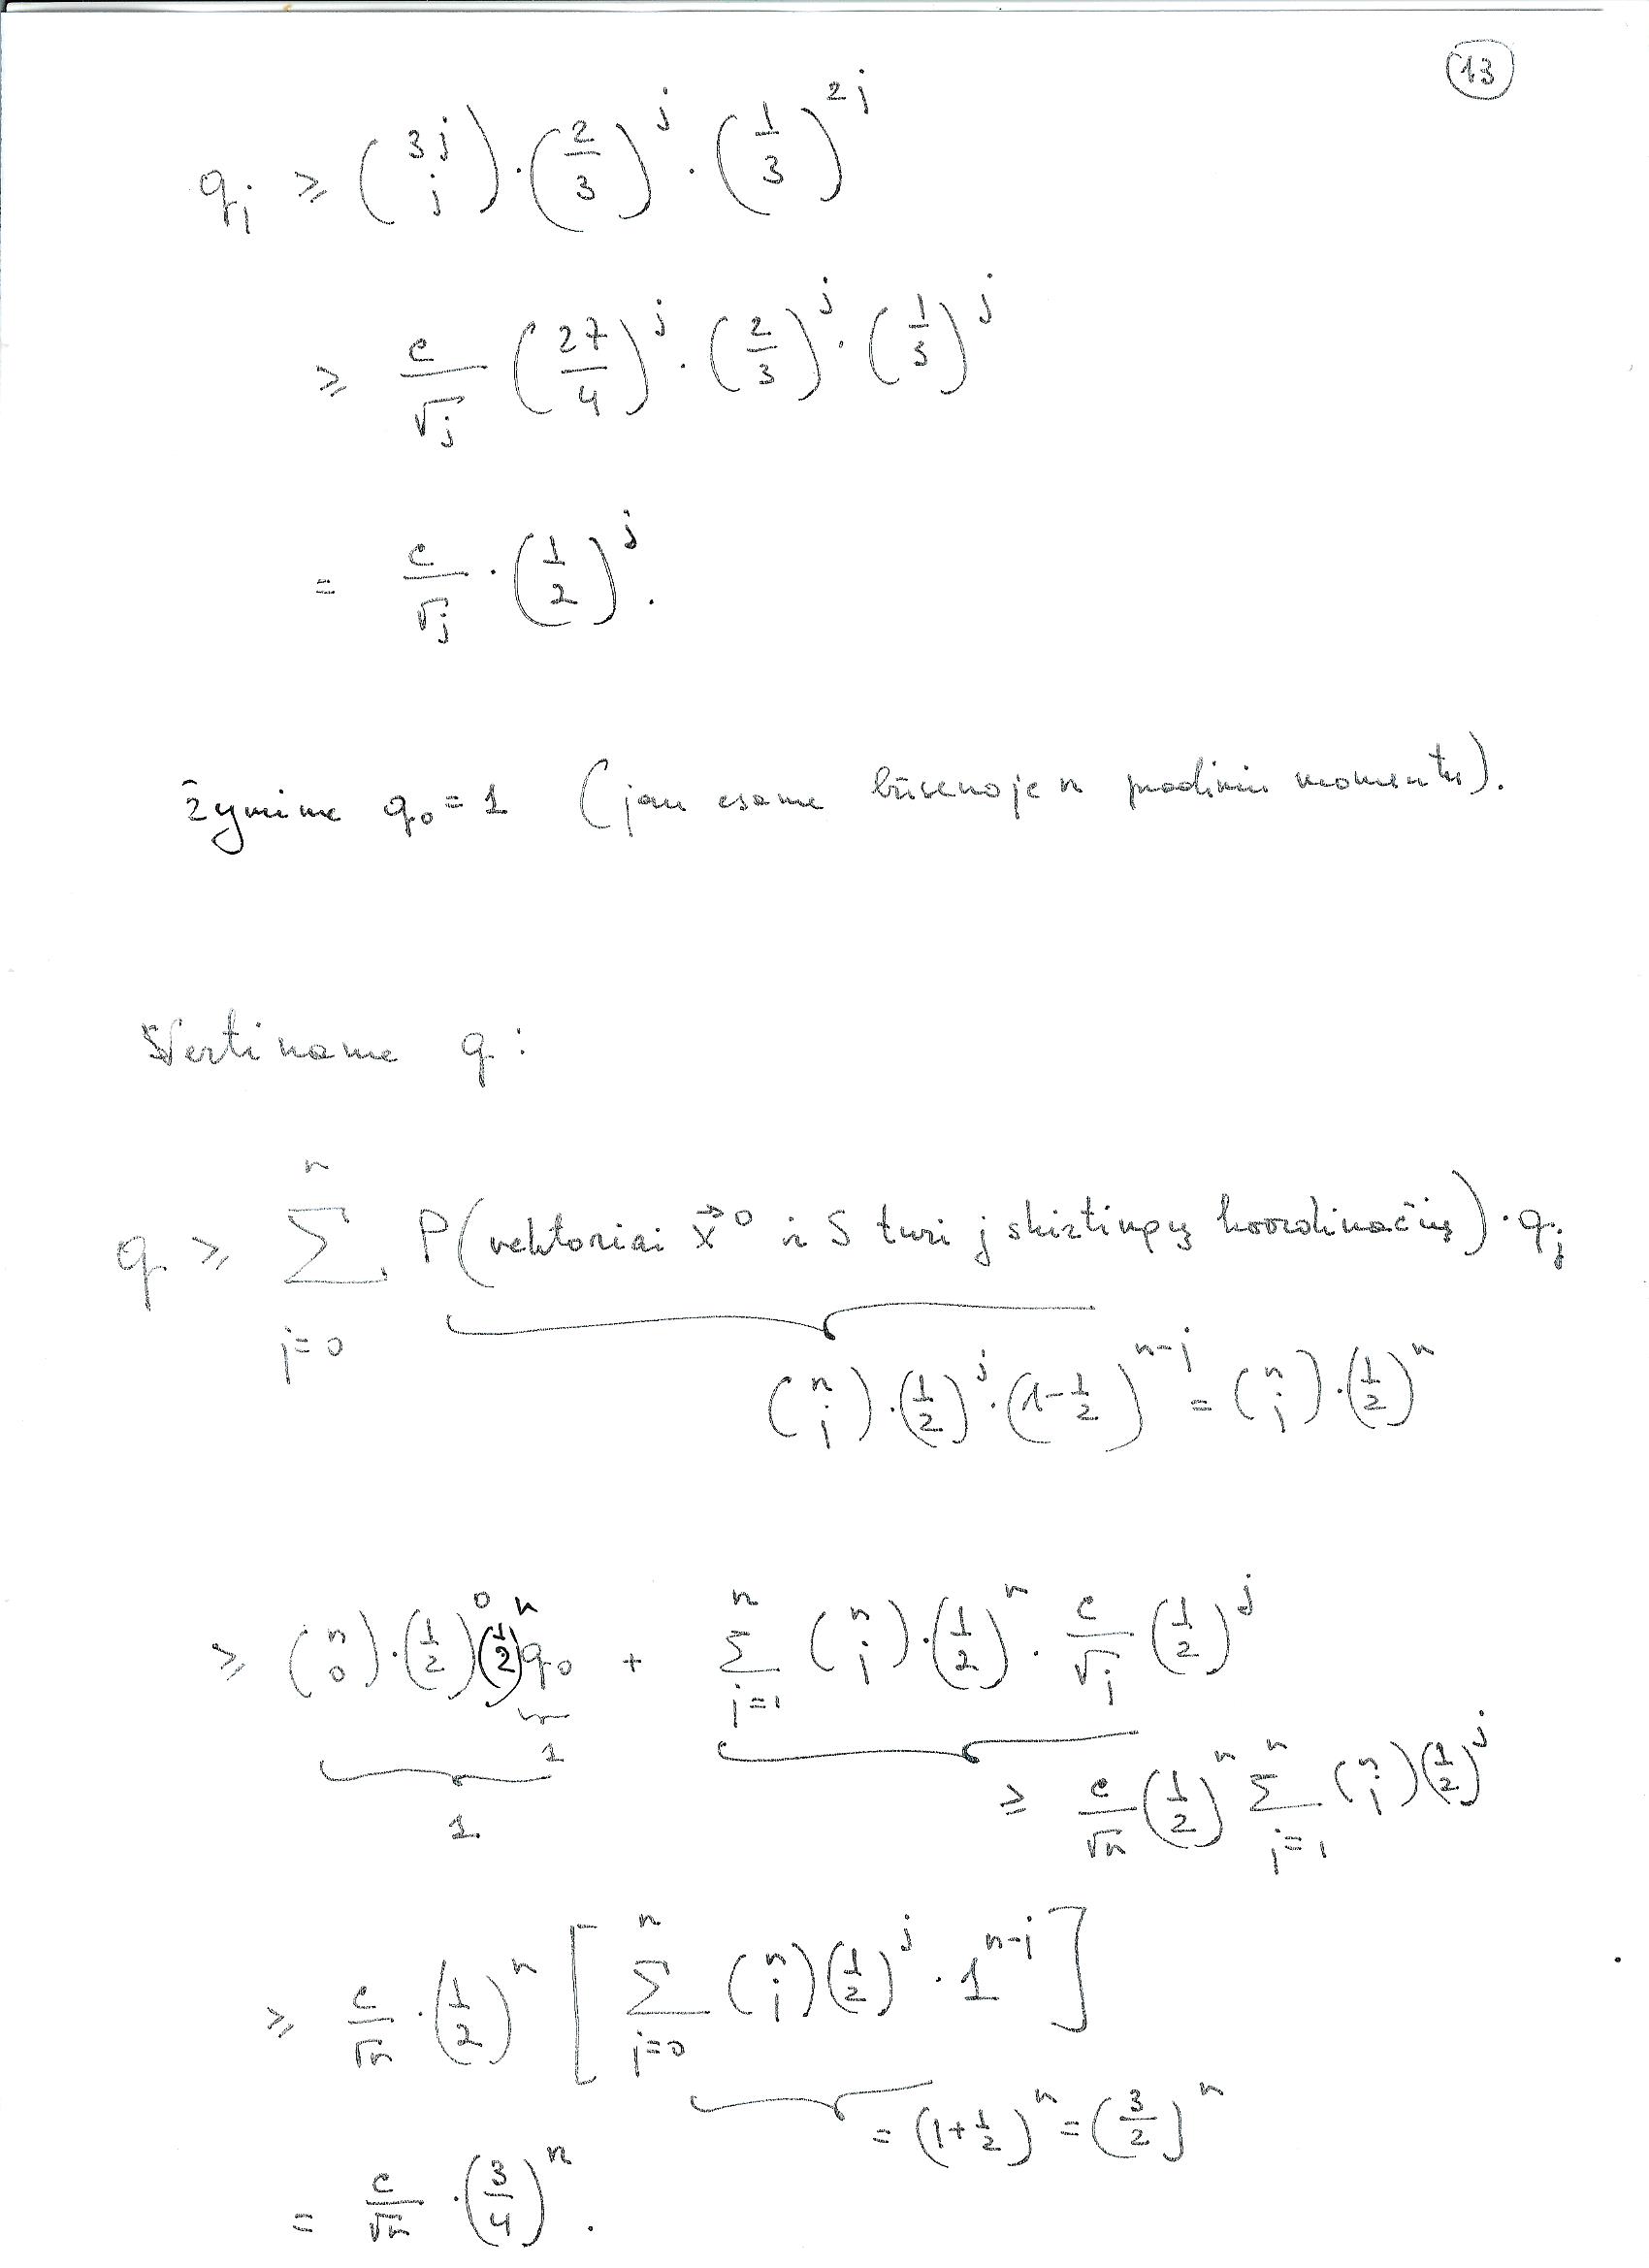 13
q_j ≥ (3j j) · (2/3)^j · (1/3)^{2j}
≥ c/√j (27/4)^j · (2/3)^j · (1/3)^j
= c/√j · (1/2)^j.
žymime q_0 = 1 (jau esame būsenoje n pradiniu momentu).
Įvertiname q:
q ≥ Σ_{j=0}^{n} P(vektoriai x⃗^0 ir S turi j skirtingų koordinačių) · q_j
(n j) · (1/2)^j · (1-1/2)^{n-j} = (n j) · (1/2)^n
≥ (n 0) · (1/2)^0 (1/2)^n q_0 + Σ_{j=1}^{n} (n j) · (1/2)^n · c/√j (1/2)^j
1
1.
≥ c/√n (1/2)^n Σ_{j=1}^{n} (n j) (1/2)^j
≥ c/√n · (1/2)^n [ Σ_{j=0}^{n} (n j) (1/2)^j · 1^{n-j} ]
= (1+1/2)^n = (3/2)^n
= c/√n · (3/4)^n.